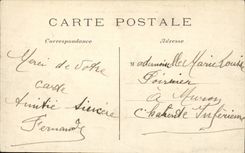 CARTE POSTALE
Correspondance
Adresse
Merci de Votre
carte
Amitié Sincère
Fernand
Mademoiselle Marie Louise
Poirier
à Muron
Charente Inférieure